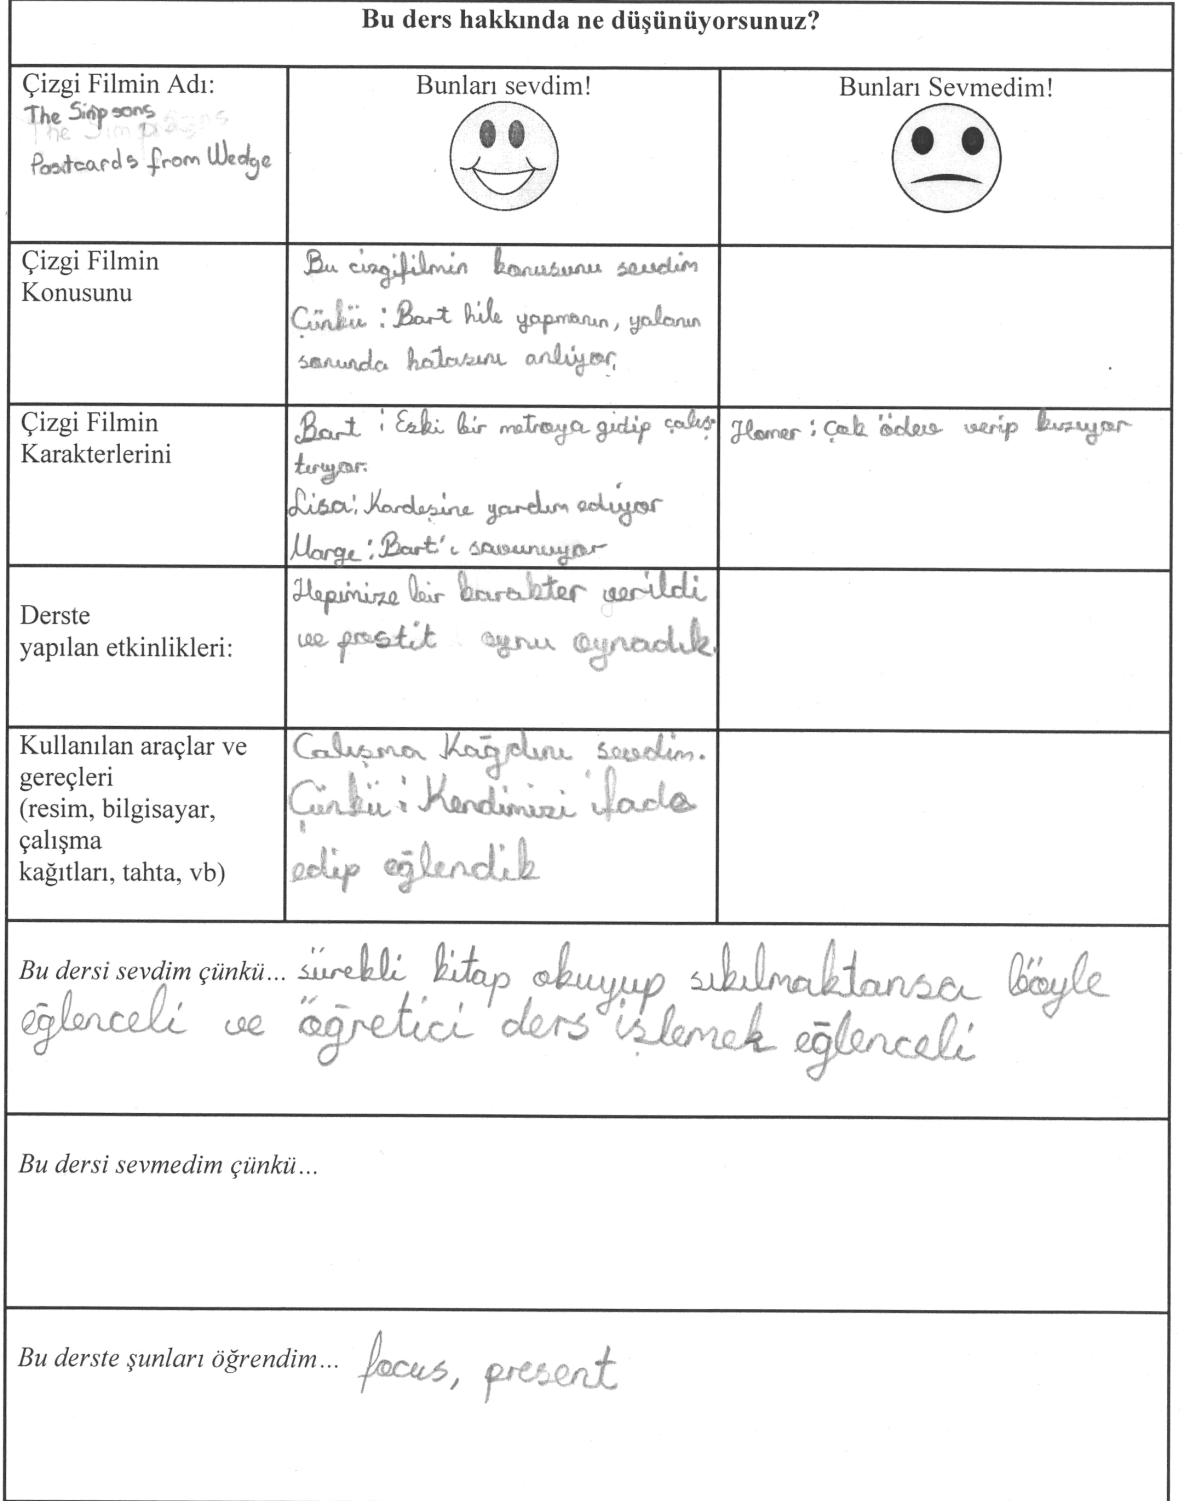 Bu ders hakkında ne düşünüyorsunuz?
Çizgi Filmin Adı:
The Simpsons
The Simpsons
Postcards from Wedge
Bunları sevdim!
Bunları Sevmedim!
Çizgi Filmin
Konusunu
Bu cizgifilmin konusunu sevdim
Çünkü : Bart hile yapmanın, yalanın
sonunda hatasını anlıyor.
Çizgi Filmin
Karakterlerini
Bart : Eski bir metroya gidip çalış
tırıyor.
Lisa: Kardeşine yardım ediyor
Marge : Bart'ı savunuyor
Homer : Çok ödev verip kızıyor
Derste
yapılan etkinlikleri:
Hepimize bir karakter verildi
ve prestit oynu oynadık.
Kullanılan araçlar ve
gereçleri
(resim, bilgisayar,
çalışma
kağıtları, tahta, vb)
Calışma Kağıdını sevdim.
Çünkü : Kendimizi ifade
edip eğlendik
Bu dersi sevdim çünkü... sürekli kitap okuyup sıkılmaktansa böyle
eğlenceli ve öğretici ders işlemek eğlenceli
Bu dersi sevmedim çünkü...
Bu derste şunları öğrendim... focus, present